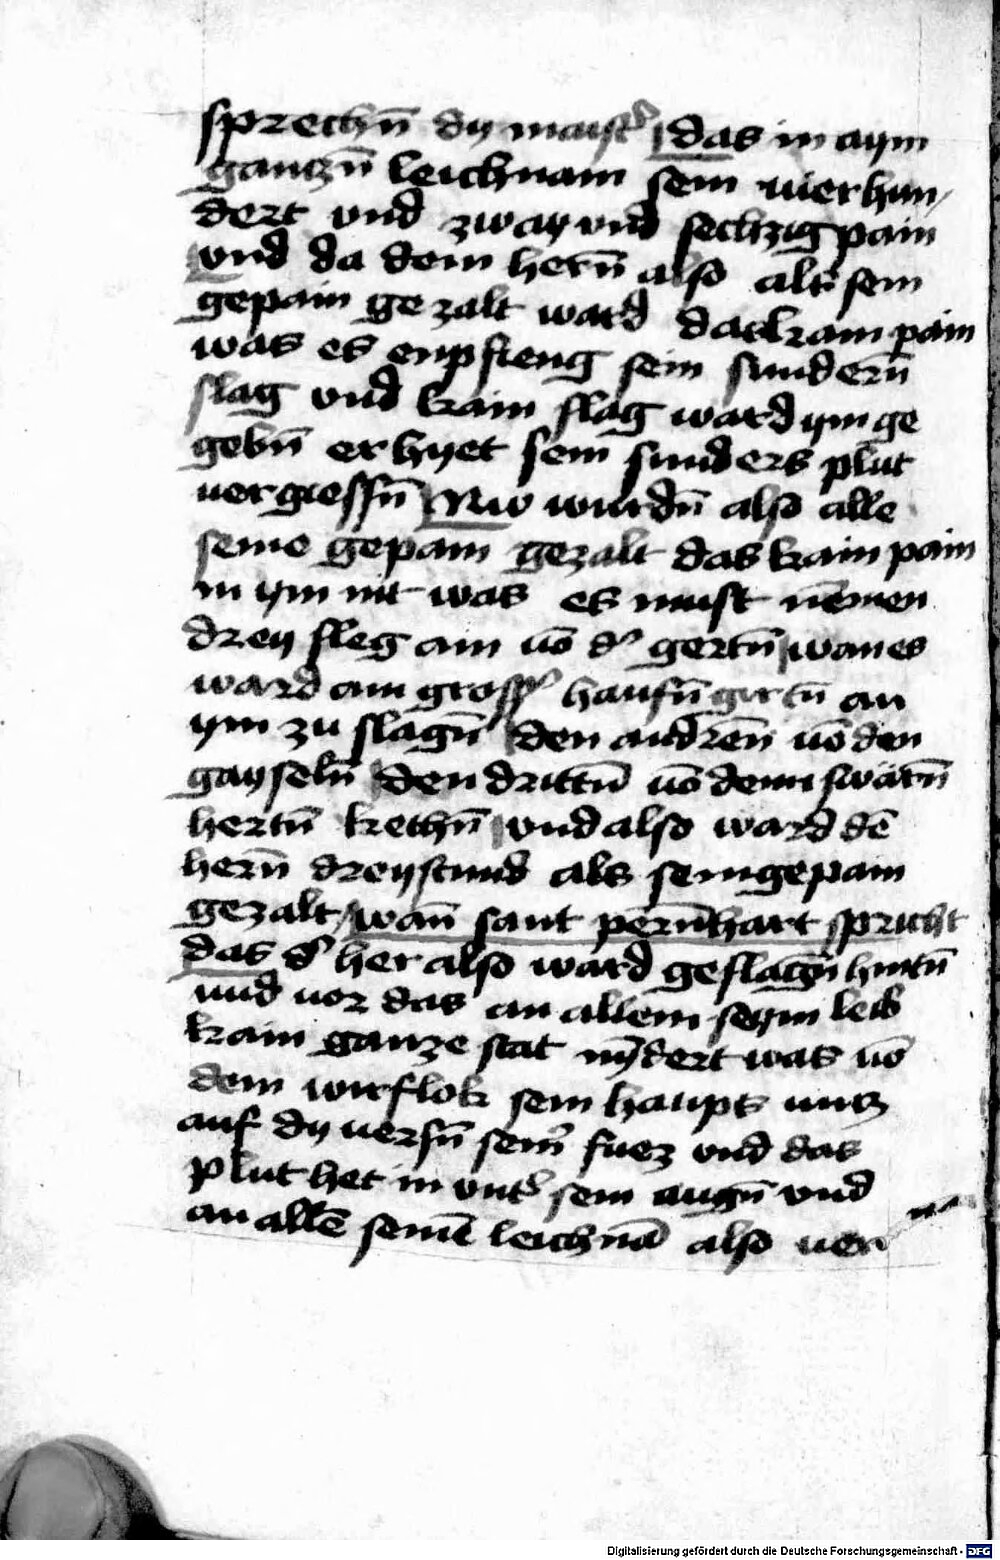 sprechn̄ dy maistˀ das in aym
gantzn̄ leichnam sein vier hun,
dert vnd zway vnd sechzig pain
vnd da dem hern̄ also als sein
gepain gezalt ward das kain pain
was es enpfieng sein sundern̄
slag vnd kain slag ward ym ge
gebn̄ er hyet sein sunders plut
uergiessn̄ Nw wurdn̄ also alle
seine gepain gezalt das kain pain
in ym nit was es must nemen
drey sleg ain uō dˀ gertn̄ wan es
ward ain grossˀ haufn̄ gertn̄ an
ym zu slagn̄ den andren̄ uō den
gayseln̄ den drittn̄ uō denn swärn̄
hertn̄ kethn̄ vnd also ward dē
hern̄ dreystund als sein gepain
gezalt wan̄ sant pern̄hart spricht
das dˀ her also ward geslagn̄ hintn̄
und uor das an allem seym leib
kain ganze stat nyͤdert was uō
dem wirflok sein haupts untz
auf dy uersn̄ seinˀ fuez vnd das
plut het in vntˀ sein augn̄ vnd
an allē seinē leichnā also uer
Digitalisierung gefördert durch die Deutsche Forschungsgemeinschaft - DFG